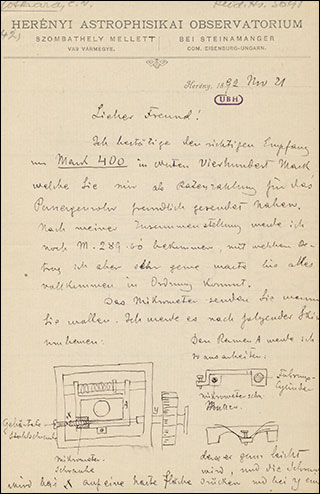 HERÉNYI ASTROPHISIKAI OBSERVATORIUM
SZOMBATHELY MELLETT
VAS VÁRMEGYE.
BEI STEINAMANGER
COM. EISENBURG-UNGARN.
Herény, 1892 Nov 21
UBH
Lieber Freund!
Ich bestätige den richtigen Empfang
von Mark 400 in Worten Vierhundert Mark
welche Sie mir als Ratenzahlung für das
freundlich gesendet haben.
Nach meiner Zusammenstellung werde ich
noch M. 289.60 bekommen, mit welchem
ich aber sehr gerne warte bis alles
vollkommen in Ordnung kommt.
Das Mikrometer senden Sie wann
Sie wollen. Ich werde es nach folgender
Den Rahmen A werde ich
so ausarbeiten:
Führungs-
Cylinder
Mikrometer-
Mutter
Mikrometer-
schraube
ganz leicht
wird, und die
wird bei auf eine Fläche drücken und bei